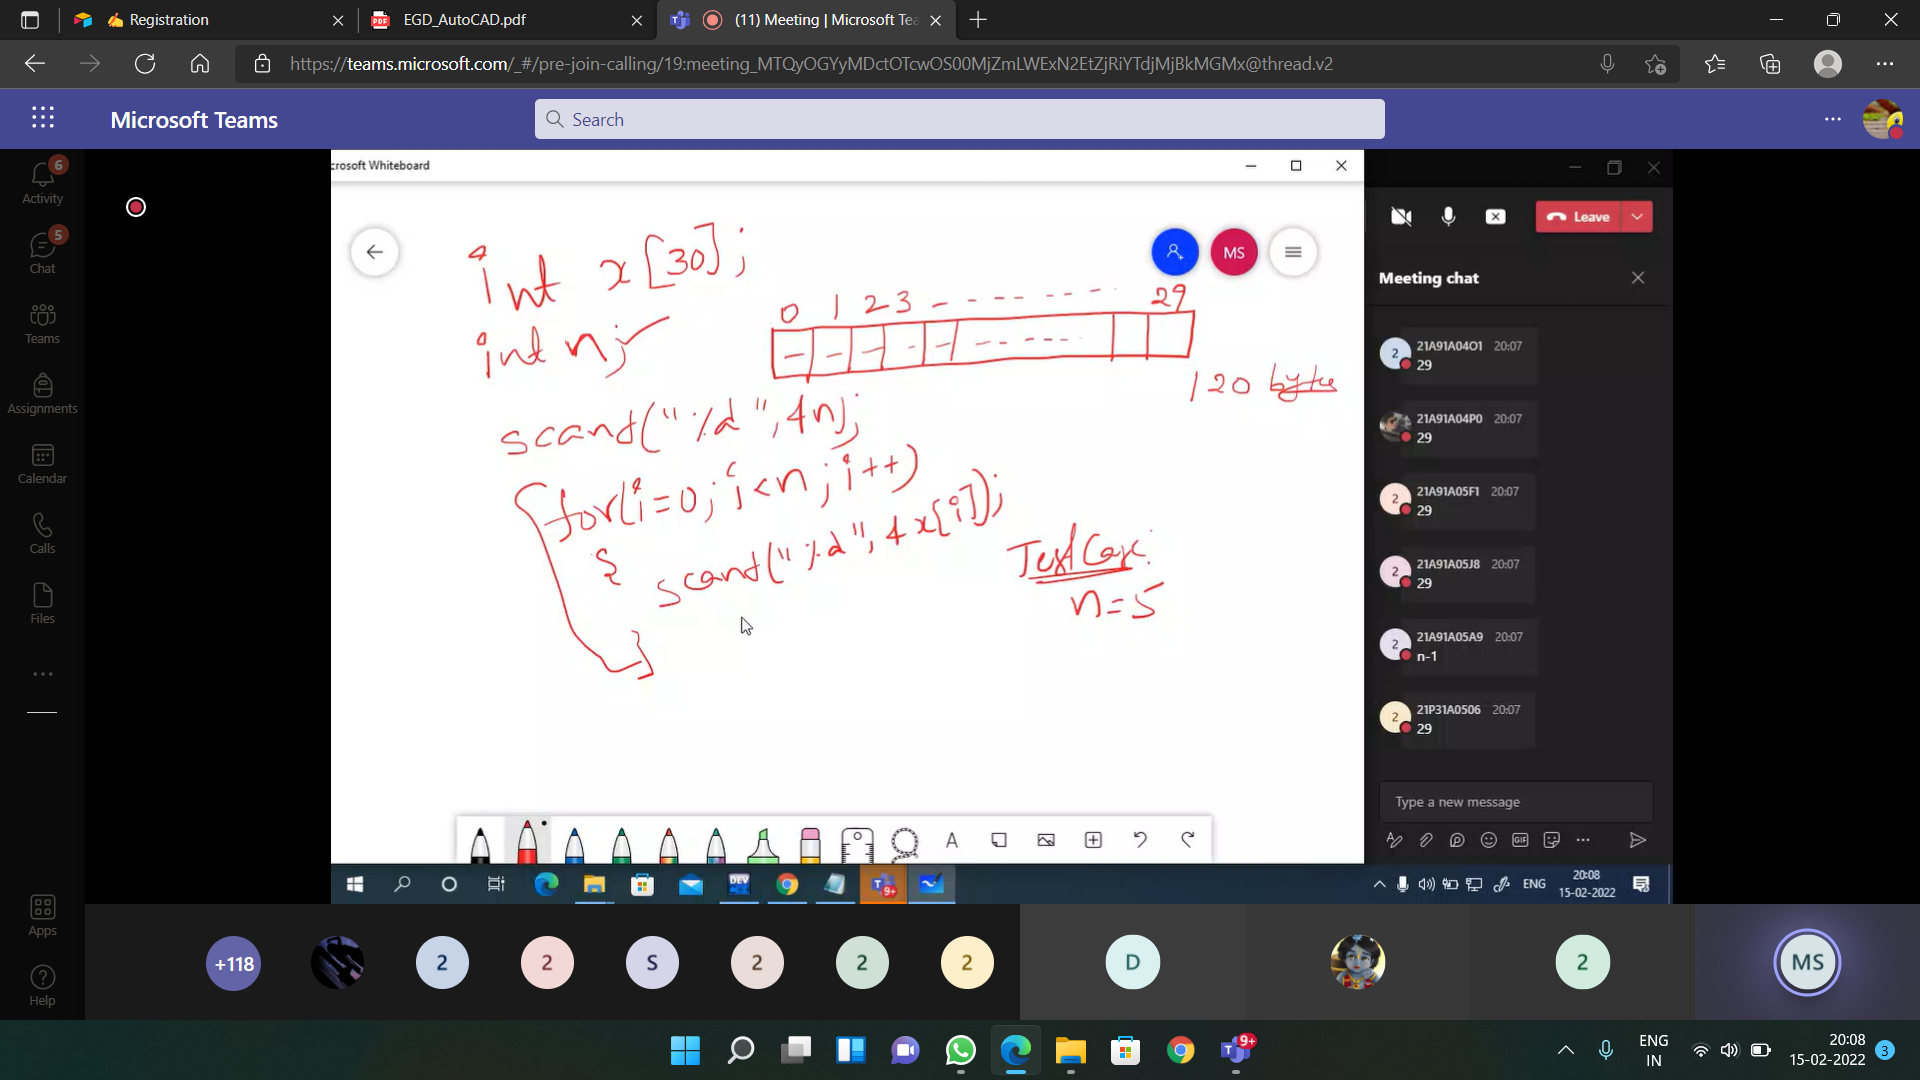 Registration
EGD_AutoCAD.pdf
(11) Meeting | Microsoft Tea
https://teams.microsoft.com/_#/pre-join-calling/19:meeting_MTQyOGYyMDctOTcwOS00MjZmLWExN2EtZjRiYTdjMjBkMGMx@thread.v2
Microsoft Teams
Search
6
Activity
5
Chat
Teams
Assignments
Calendar
Calls
Files
Apps
Help
crosoft Whiteboard
MS
int x[30];
int n;
0 1 2 3 - - - - - - - - 29
120 bytes
scanf("%d", &n);
for(i=0; i<n; i++)
{
scanf("%d", &x[i]);
}
Test Case:
n=5
Leave
Meeting chat
2 21A91A04O1 20:07
29
21A91A04P0 20:07
29
2 21A91A05F1 20:07
29
2 21A91A05J8 20:07
29
2 21A91A05A9 20:07
n-1
2 21P31A0506 20:07
29
Type a new message
A
GIF
DEV
9+
ENG
20:08
15-02-2022
+118
2
2
S
2
2
2
D
2
MS
9+
ENG
IN
20:08
15-02-2022
3